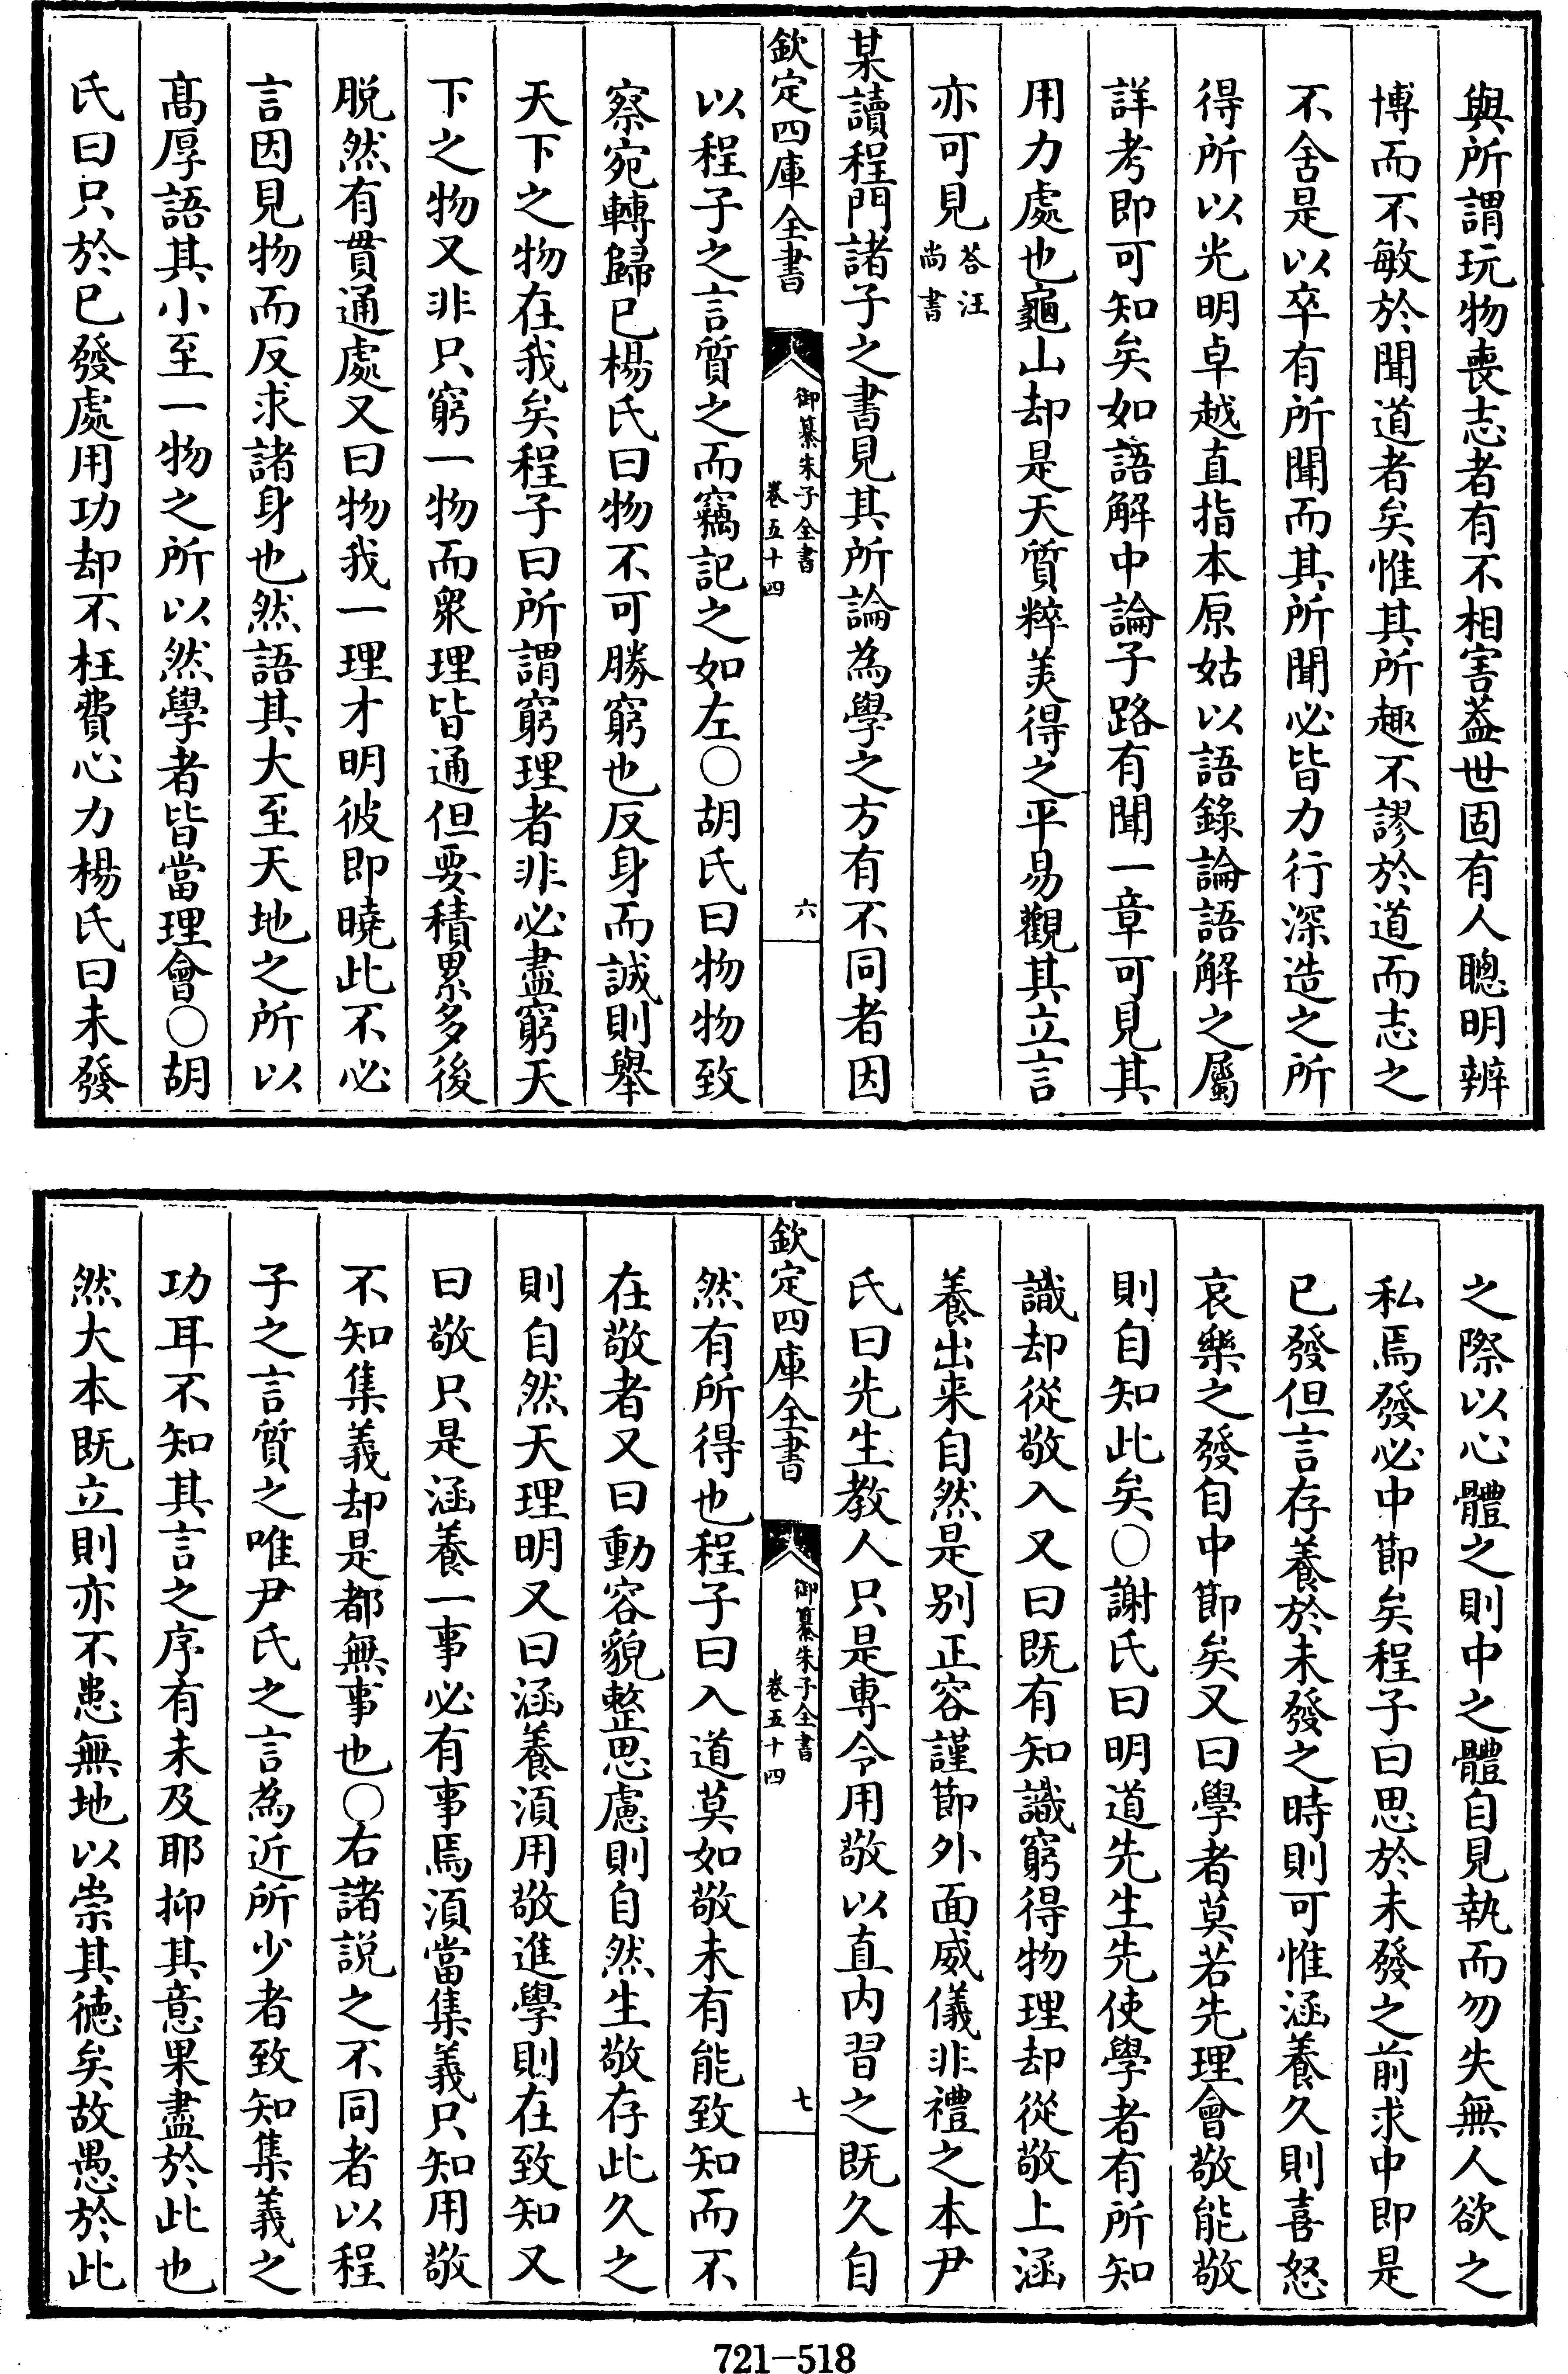 與所謂玩物喪志者有不相害葢世固有人聰明辨
博而不敏於聞道者矣惟其所趣不謬於道而志之
不舍是以卒有所聞而其所聞必皆力行深造之所
得所以光明卓越直指本原姑以語錄論語解之屬
詳考即可知矣如語解中論子路有聞一章可見其
用力處也龜山却是天質粹美得之平易觀其立言
亦可見答汪尚書
某讀程門諸子之書見其所論為學之方有不同者因
欽定四庫全書
御纂朱子全書
卷五十四
六
以程子之言質之而竊記之如左○胡氏曰物物致
察宛轉歸已楊氏曰物不可勝窮也反身而誠則舉
天下之物在我矣程子曰所謂窮理者非必盡窮天
下之物又非只窮一物而衆理皆通但要積累多後
脱然有貫通處又曰物我一理才明彼即曉此不必
言因見物而反求諸身也然語其大至天地之所以
髙厚語其小至一物之所以然學者皆當理會○胡
氏曰只於已發處用功却不枉費心力楊氏曰未發
之際以心體之則中之體自見執而勿失無人欲之
私焉發必中節矣程子曰思於未發之前求中即是
已發但言存養於未發之時則可惟涵養久則喜怒
哀樂之發自中節矣又曰學者莫若先理會敬能敬
則自知此矣○謝氏曰明道先生先使學者有所知
識却從敬入又曰既有知識窮得物理却從敬上涵
養出来自然是别正容謹節外面威儀非禮之本尹
氏曰先生教人只是専令用敬以直内習之既久自
欽定四庫全書
御纂朱子全書
卷五十四
七
然有所得也程子曰入道莫如敬未有能致知而不
在敬者又曰動容貌整思慮則自然生敬存此久之
則自然天理明又曰涵養湏用敬進學則在致知又
曰敬只是涵養一事必有事焉湏當集義只知用敬
不知集義却是都無事也○右諸説之不同者以程
子之言質之唯尹氏之言為近所少者致知集義之
功耳不知其言之序有未及耶抑其意果盡於此也
然大本既立則亦不患無地以崇其徳矣故愚於此
721-518